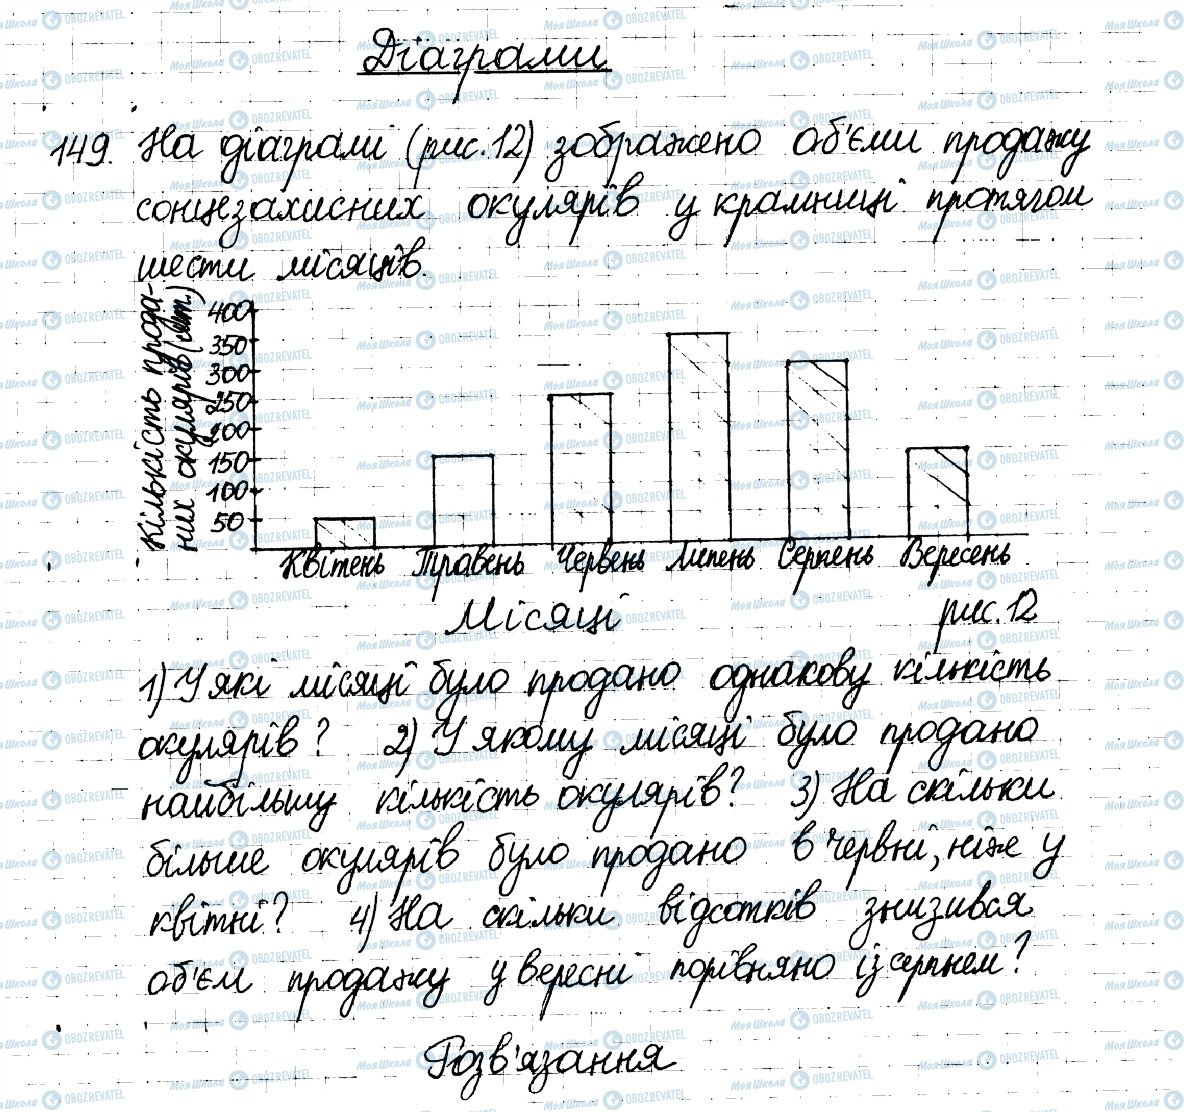 Діаграми
149. На діаграмі (рис.12) зображено об'єми продажу
сонцезахисних окулярів у крамниці протягом
шести місяців.
Кількість прода-
них окулярів (шт.)
400
350
300
250
200
150
100
50
Квітень Травень Червень Липень Серпень Вересень
Місяці
рис.12
1) У які місяці було продано однакову кількість
окулярів? 2) У якому місяці було продано
найбільшу кількість окулярів? 3) На скільки
більше окулярів було продано в червні, ніж у
квітні? 4) На скільки відсотків знизився
об'єм продажу у вересні порівняно із серпнем?
Розв'язання